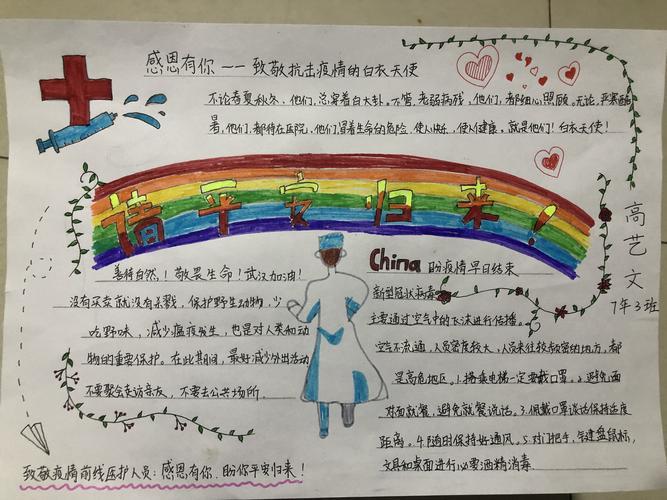 感恩有你——致敬抗击疫情的白衣天使
不论春夏秋冬，他们，总穿着白大卦。不管，老弱病残，他们，都细心照顾。无论，严寒酷
暑，他们，都待在医院，他们，冒着生命的危险，使人快乐，使人健康，就是他们！白衣天使！
请平安归来！
高艺文
7年3班
善待自然！敬畏生命！武汉加油！
没有买卖就没有杀戮，保护野生动物，少
吃野味，减少瘟疫发生，也是对人类和动
物的重要保护。在此期间，最好减少外出活动
不要聚会走访亲友，不要去公共场所。
China 盼疫情早日结束
新型冠状病毒
主要通过空气中的飞沫进行传播。
空气不流通，人员密度较大，人员来往较频密的地方，都
是高危地区。1.搭乘电梯一定要戴口罩。2.避免面
对面就餐，避免就餐说话。3.佩戴口罩谈话保持适度
距离。4.随时保持好通风。5.对门把手，键盘鼠标，
文具和桌面进行必要酒精消毒。
致敬疫情前线医护人员：感恩有你 盼你平安归来！